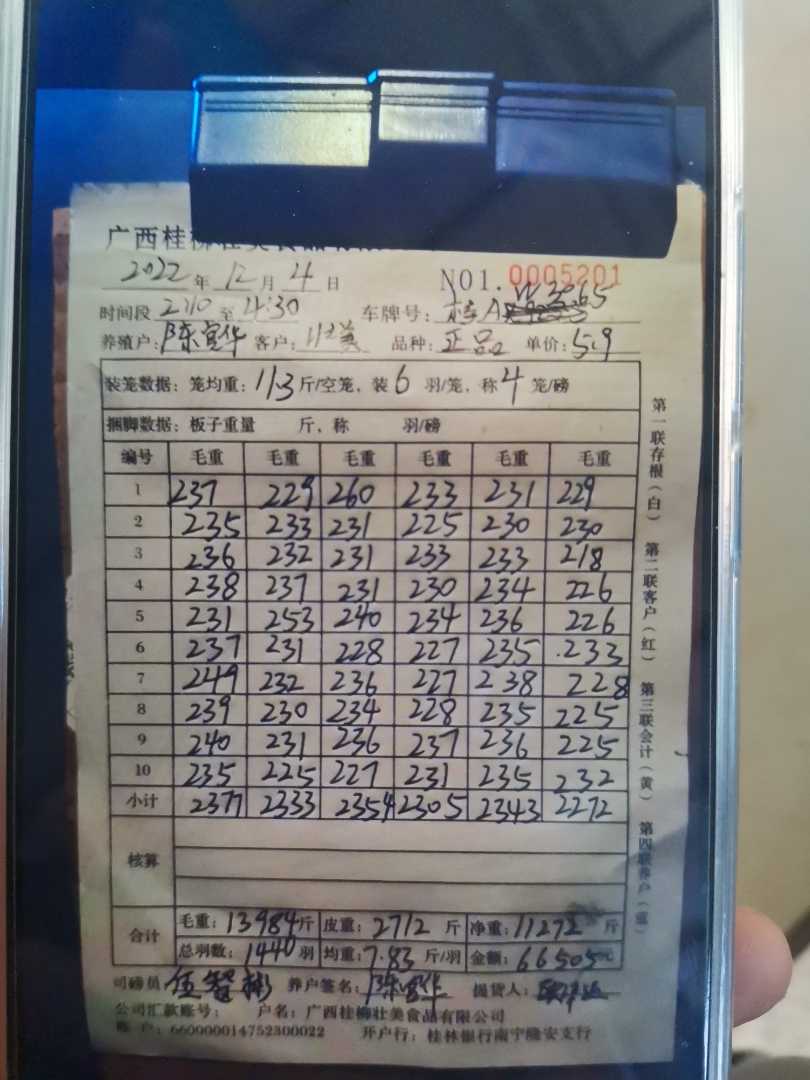 广西桂柳壮美食品有限
2022年12月4日 NO1.0005201
时间段 2:10 至 4:30 车牌号: 桂A W3265
养殖户: 陈宣华 客户: 壮美 品种: 正品 单价: 5.9
装笼数据: 笼均重: 11.3 斤/空笼, 装 6 羽/笼, 称 4 笼/磅
捆脚数据: 板子重量 斤, 称 羽/磅
编号 毛重 毛重 毛重 毛重 毛重 毛重
1 237 229 260 233 231 229
2 235 233 231 225 230 230
3 236 232 231 233 233 218
4 238 237 231 230 234 226
5 231 253 240 234 236 226
6 237 231 228 227 235 233
7 249 232 236 227 238 228
8 239 230 234 228 235 225
9 240 231 236 237 236 225
10 235 225 227 231 235 232
小计 2377 2333 2354 2305 2343 2272
核算
合计 毛重: 13984斤 皮重: 2712 斤 净重: 11272 斤
总羽数: 1440羽 均重: 7.83 斤/羽 金额: 66505元
司磅员 伍智彬 养户签名: 陈宣华 提货人:
公司汇款账号: 户名: 广西桂柳壮美食品有限公司
账户: 660000014752300022 开户行: 桂林银行南宁隆安支行
第一联存根(白) 第二联客户(红) 第三联会计(黄) 第四联养户(蓝)